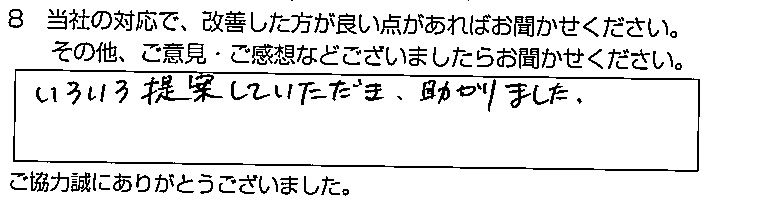 8 当社の対応で、改善した方が良い点があればお聞かせください。
その他、ご意見・ご感想などございましたらお聞かせください。
いろいろ提案していただき、助かりました。
ご協力誠にありがとうございました。